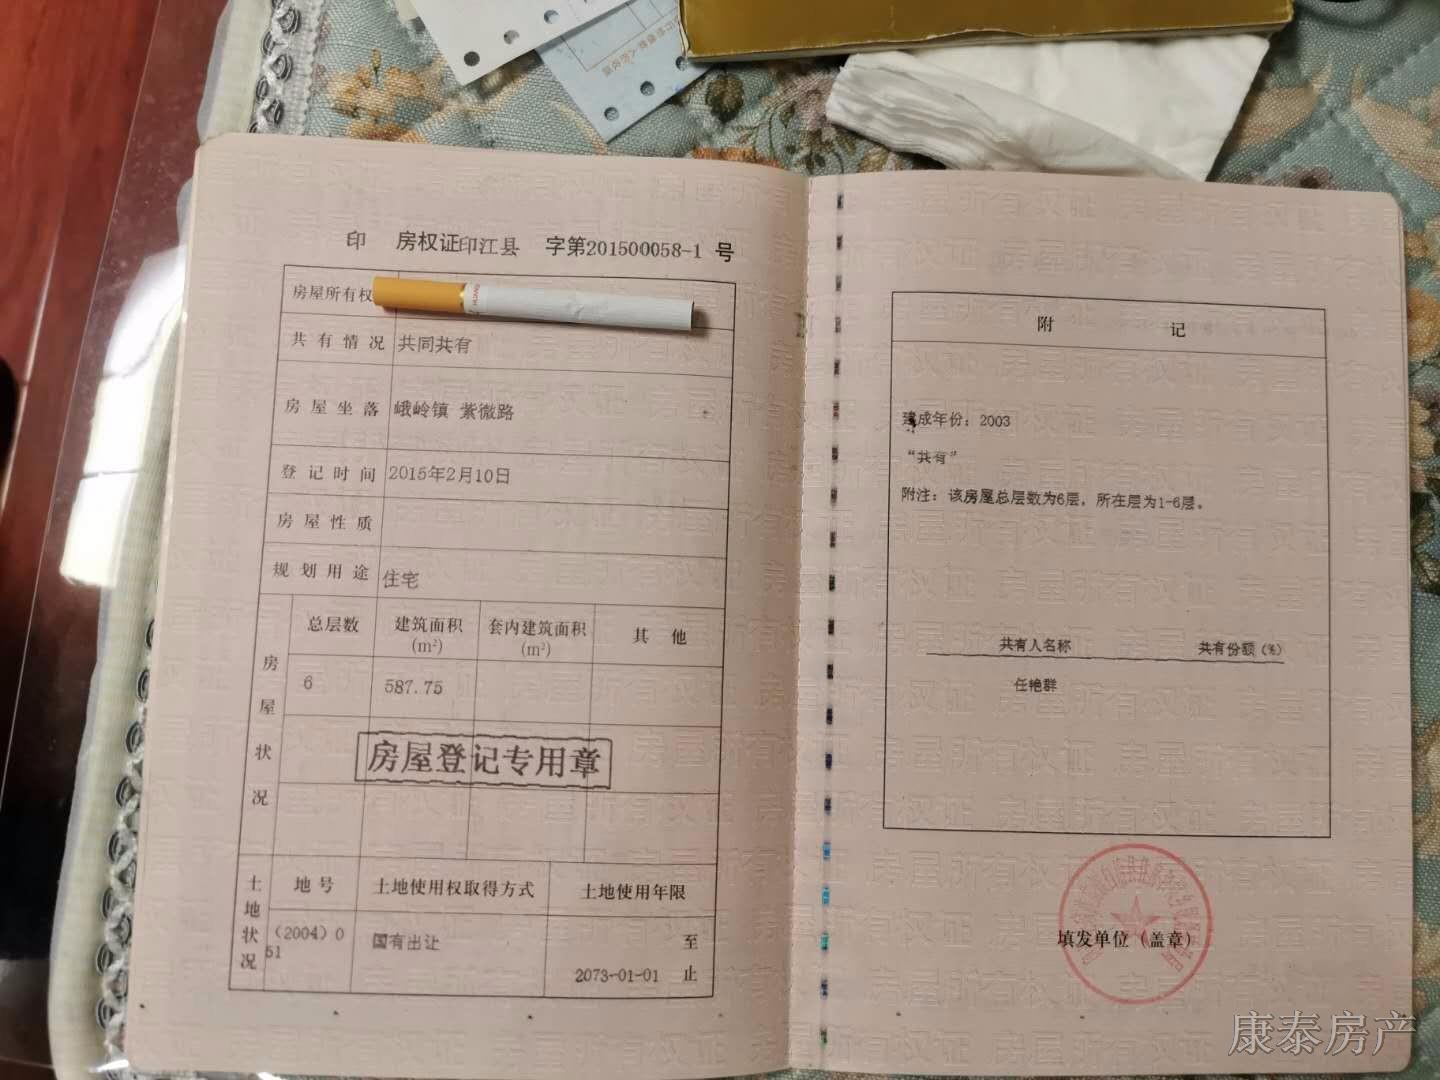 印 房权证印江县 字第201500058-1 号
房屋所有权
共有情况 共同共有
房屋坐落 峨岭镇 紫微路
登记时间 2015年2月10日
房屋性质
规划用途 住宅
房屋状况
总层数 建筑面积(m²) 套内建筑面积(m²) 其他
6 587.75
房屋登记专用章
土地状况
地号 土地使用权取得方式 土地使用年限
(2004)051 国有出让 至
2073-01-01 止
附 记
建成年份：2003
“共有”
附注：该房屋总层数为6层，所在层为1-6层。
共有人名称 共有份额(%)
任艳群
填发单位（盖章）
康泰房产